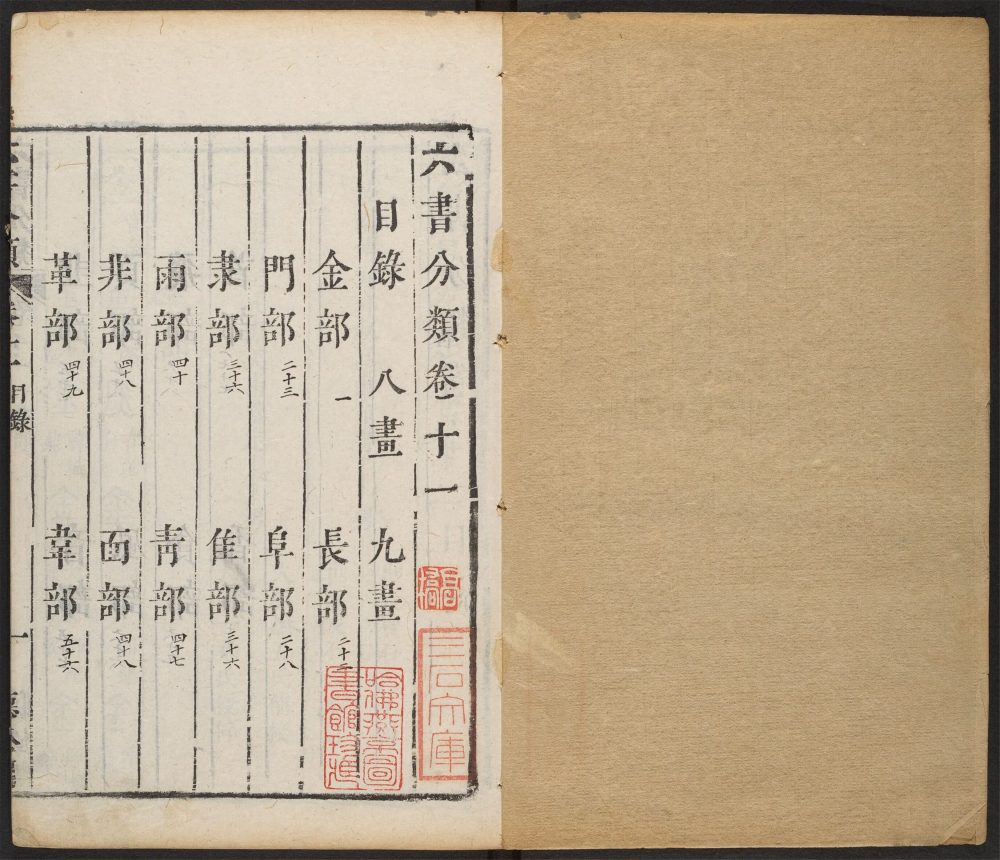 六書分類卷十一
目錄 八畫 九畫
金部 一 長部
門部 二十三 阜部 二十八
隶部 三十六 隹部 三十六
雨部 四十 靑部 四十七
非部 四十八 面部 四十八
革部 四十九 韋部 五十六
目錄
一
哈佛燕京圖書館珍藏